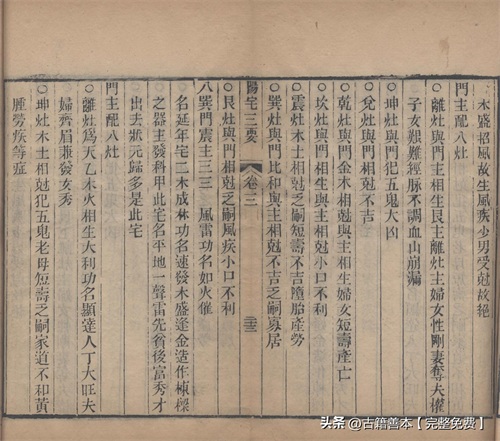 木盛招風故生風疾少男受尅故絕
門主配八灶
○離灶與門主相生艮主離灶主婦女性剛妻奪夫權
子女艱難經脈不調血山崩漏
○坤灶與門犯五鬼大凶
○兌灶與門相尅不吉
○乾灶與門金木相尅與主相生婦女短壽產亡
○坎灶與門相生與主相尅小口不利
○震灶木土相尅乏嗣短壽不吉墮胎產勞
○巽灶與門比和與主相尅不吉乏嗣寡居
陽宅三要
卷三
三三
○艮灶與門相尅乏嗣風疾小口不利
八巽門震主三三 風雷功名如火催
名延年宅二木成林功名速發木盛逢金造作棟樑
之器主發科甲此宅名平地一聲雷先貧後富秀才
出去狀元歸多是此宅
門主配八灶
○離灶為天乙木火相生大利功名顯達人丁大旺夫
婦齊眉兼發女秀
○坤灶木土相尅犯五鬼老母短壽乏嗣家道不和黃
腫勞疾等症
头条 @古籍善本【完整免费】